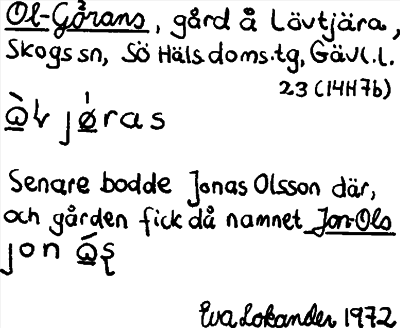 Ol-Görans, gård å Lövtjära,
Skogs sn, Sö Häls doms.tg, Gävl.l.
23 (14H7b)
jøras
Senare bodde Jonas Olsson där,
och gården fick då namnet Jon-Ols
jon
Eva Lokander 1972